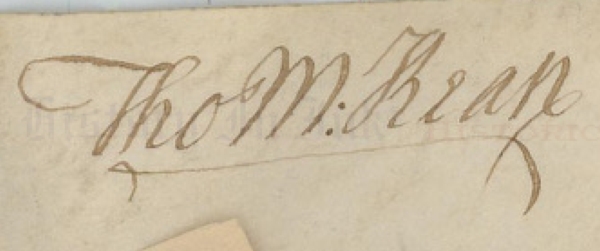 Tho M:Kean